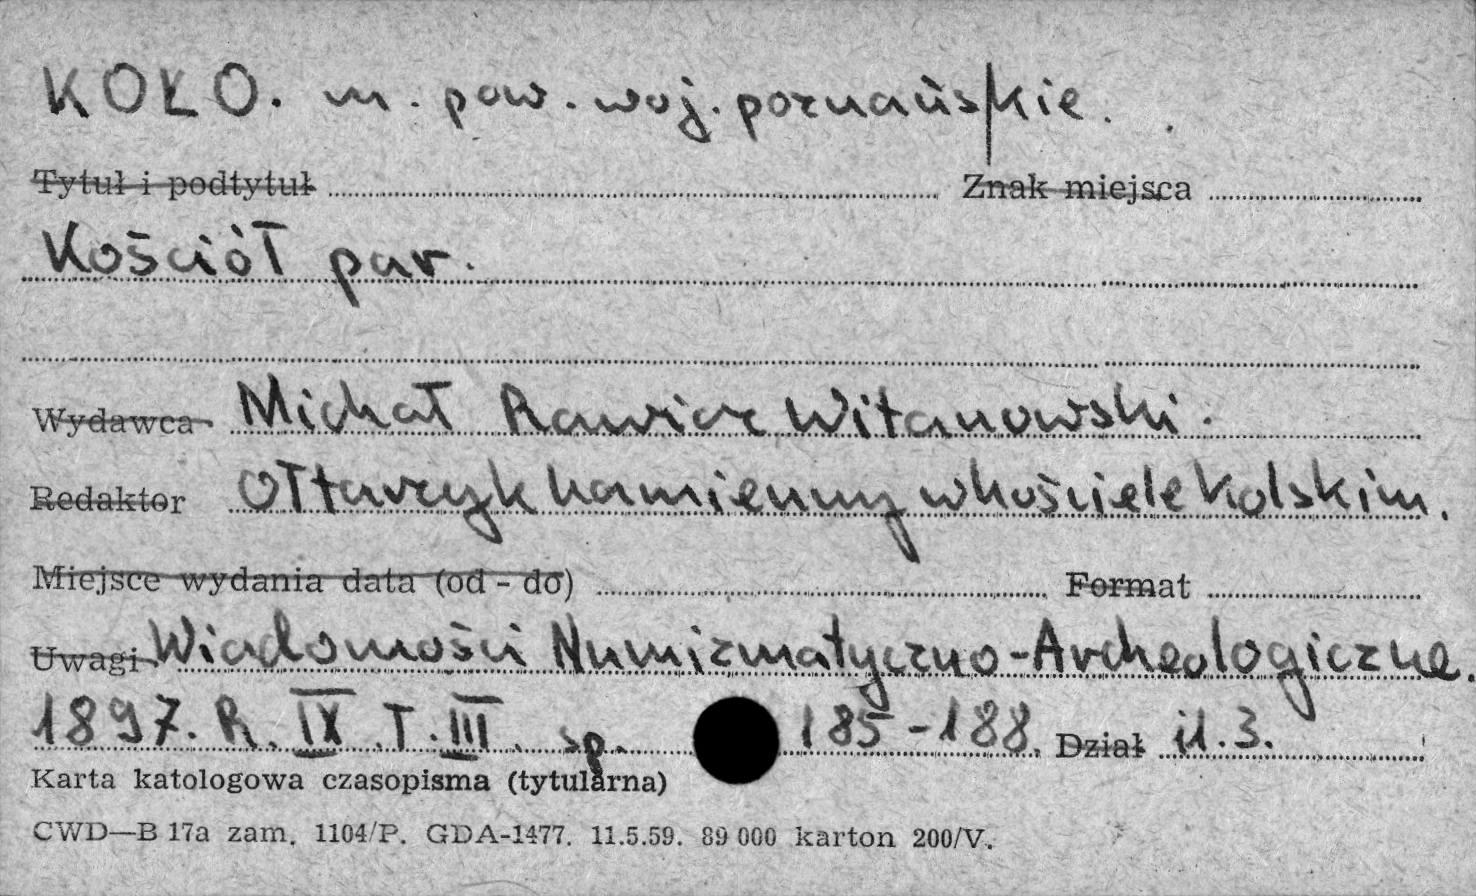 KOŁO. m. pow. woj. poznańskie.
Tytuł i podtytuł Znak miejsca
Kościół par.
Wydawca Michał Rawicz Witanowski.
Redaktor Ołtarzyk kamienny w kościele Kolskim.
Miejsce wydania data (od - do) Format
Uwagi Wiadomości Numizmatyczno-Archeologiczne.
1897. R. IX. T. III. sp. 185-188. Dział il. 3.
Karta katologowa czasopisma (tytularna)
CWD—B 17a zam. 1104/P. GDA-1477. 11.5.59. 89 000 karton 200/V.